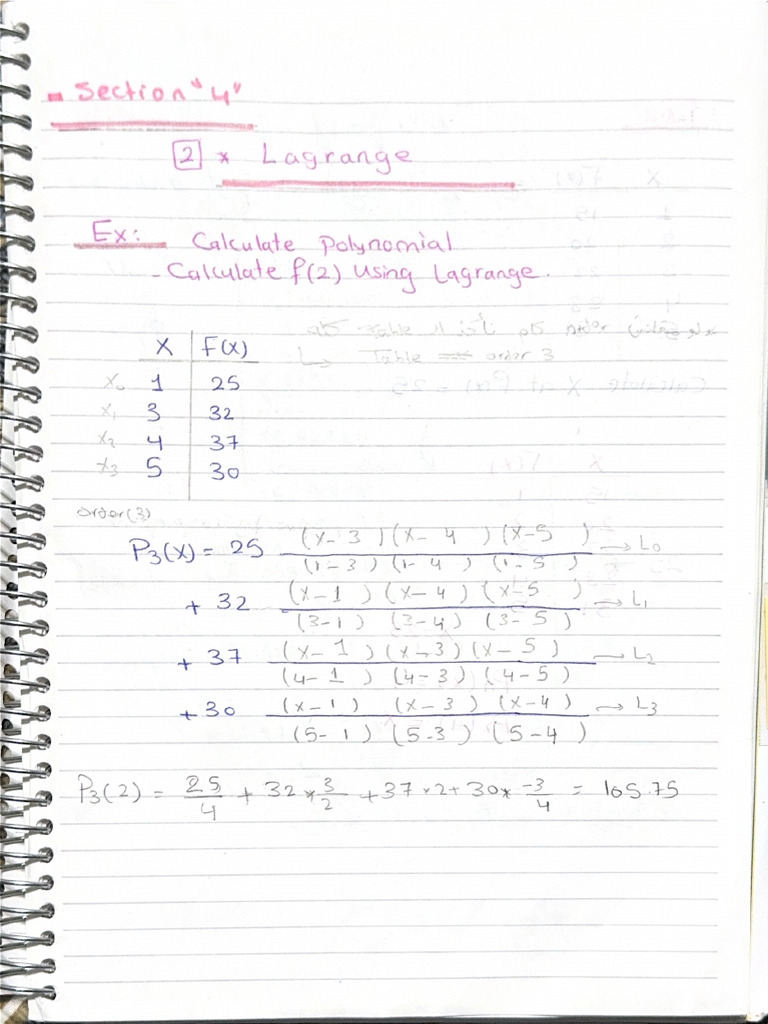 - Section "4"
2 * Lagrange
Ex: Calculate Polynomial
- Calculate f(2) using Lagrange.
X F(X)
X₀ 1 25
X₁ 3 32
X₂ 4 37
X₃ 5 30
order(3)
P₃(X) = 25 (X-3)(X-4)(X-5) / (1-3)(1-4)(1-5) → L₀
+ 32 (X-1)(X-4)(X-5) / (3-1)(3-4)(3-5) → L₁
+ 37 (X-1)(X-3)(X-5) / (4-1)(4-3)(4-5) → L₂
+ 30 (X-1)(X-3)(X-4) / (5-1)(5-3)(5-4) → L₃
P₃(2) = 25/4 + 32 * 3/2 + 37 * 2 + 30 * -3/4 = 105.75